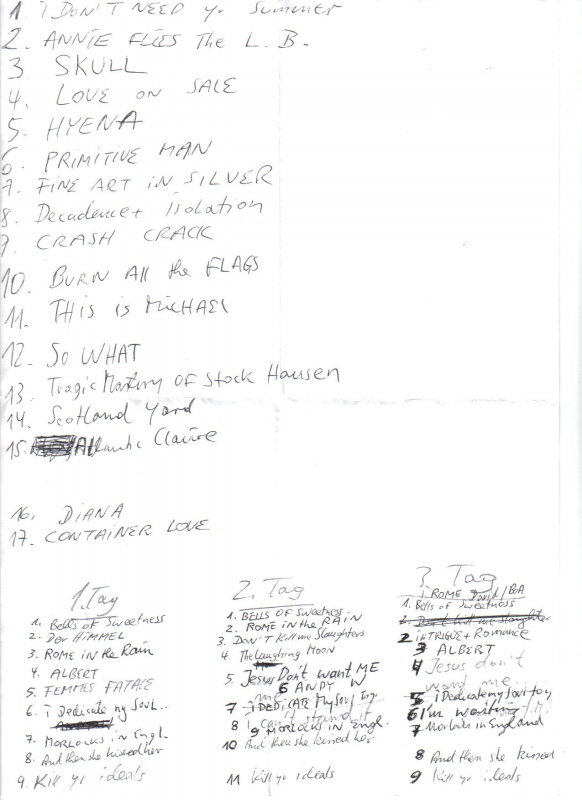 1. i DON'T NEED yr Summer
2. ANNIE FLIES The L.B.
3. SKULL
4. LOVE ON SALE
5. HYENA
6. PRIMITIVE MAN
7. FINE ART IN SILVER
8. Decadence+ Isolation
9. CRASH CRACK
10. BURN All the FLAGS
11. THis is MiCHAEl
12. SO WHAT
13. Tragic Mastery OF Stock Hausen
14. Scotland Yard
15. Atlantic Claire
16. DIANA
17. CONTAINER LOVE
1. Tag
1. Bells of Sweetness
2. Der HIMMEL
3. ROME in the Rain
4. ALBERT
5. FEMMES FATALE
6. i Dedicate my Soul..
7. MORLOCKS in Engl.
8. And then she kissed her
9. Kill yr ideals
2. Tag
1. BELLS OF SWEETNESS
2. ROME IN THE RAIN
3. DON'T Kill me Slaughters
4. The Laughing MOON
5. Jesus Don't want ME
me
6 ANDY W
7 i DEDICATE My Soul to y
8 i can't stand it
9 MORLOCKS in Engl.
10 And then she kissed her
11 Kill yr ideals
3. Tag
ROME David/BOA
1. Bells of Sweetness
2. Don't kill me slaughter
2 iNTRIGUE + Romance
3 ALBERT
4 Jesus don't
want me
5 i Dedicate my Soul to y
6 I'm waiting
7 Morlocks in England
8 And then she kissed
9 Kill yr ideals